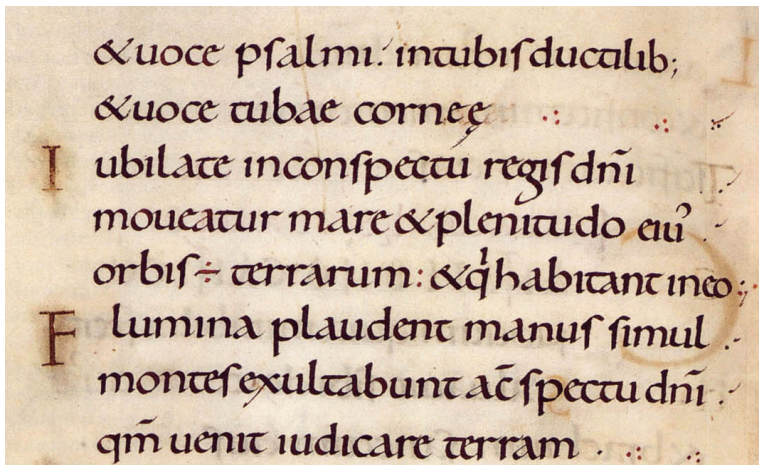 &uoce psalmi. intubisductilib;
&uoce tubae corneę
Iubilate inconspectu regis dñi
moueatur mare &plenitudo eiuʼ
orbis÷ terrarum: &qͥhabitant ineo;
Flumina plaudent manus simul
montes exultabunt ac̄spectu dñi
qm̄ uenit iudicare terram